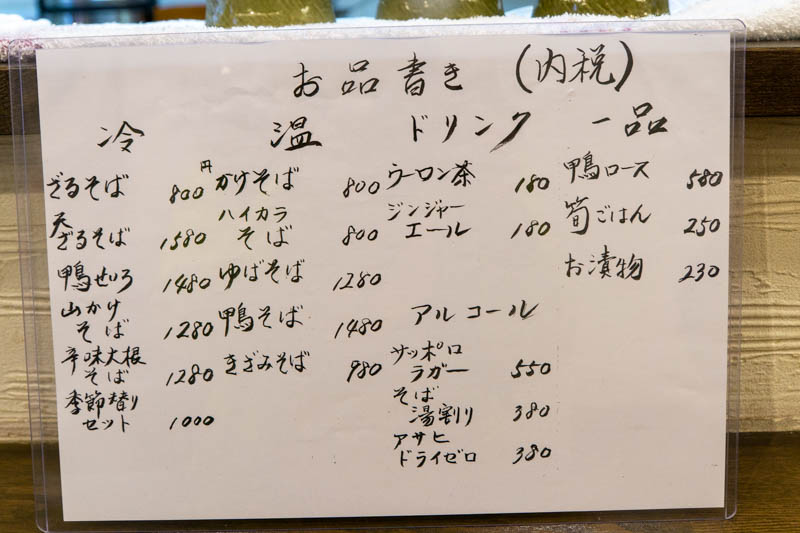 お品書き (内税)
冷
ざるそば 800円
天ざるそば 1580
鴨せいろ 1480
山かけ
そば 1280
辛味大根
そば 1280
季節替り
セット 1000
温
かけそば 800
ハイカラ
そば 800
ゆばそば 1280
鴨そば 1480
きざみそば 980
ドリンク
ウーロン茶 180
ジンジャー
エール 180
アルコール
サッポロ
ラガー 550
そば
湯割り 380
アサヒ
ドライゼロ 380
一品
鴨ロース 580
筍ごはん 250
お漬物 230